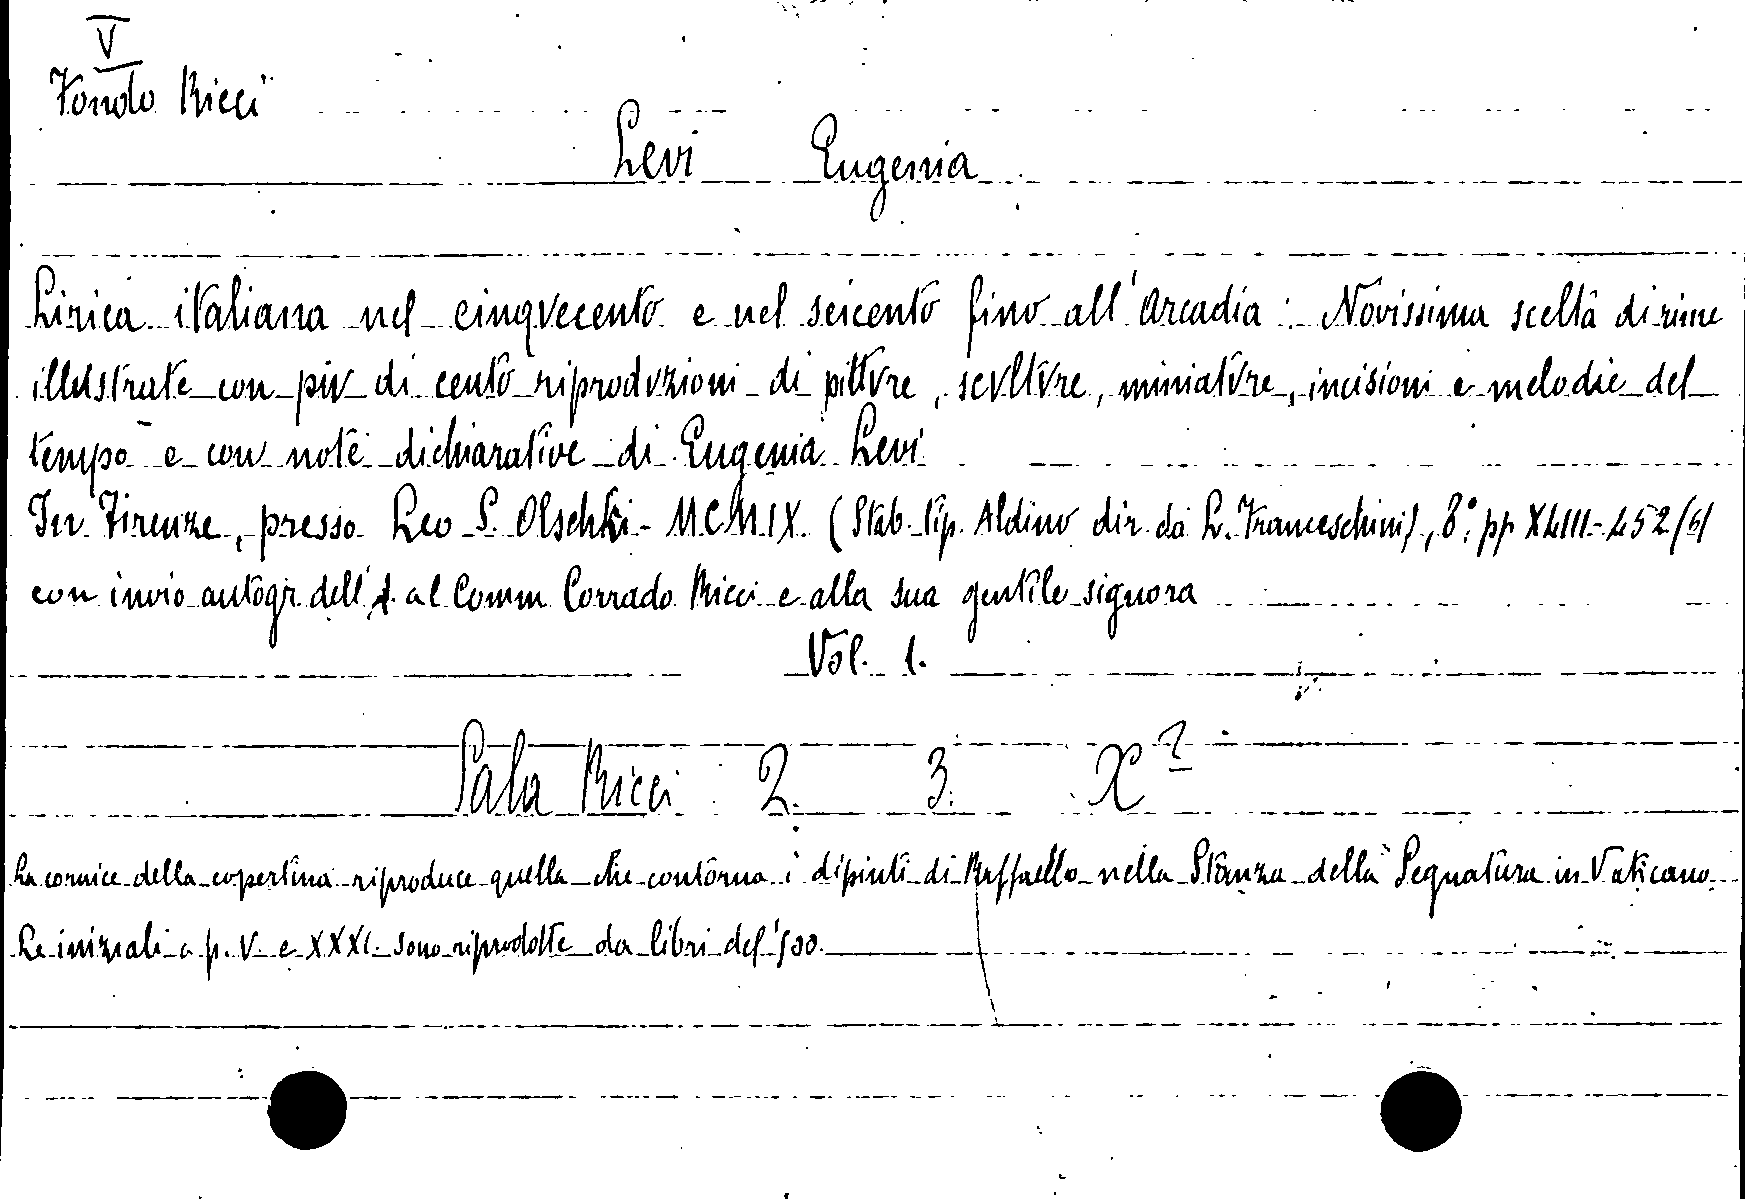 V
Fondo Ricci
Levi Eugenia
Lirica italiana nel cinquecento e nel seicento fino all'Arcadia: Novissima scelta di rime
illustrate con più di cento riproduzioni di pitture, sculture, miniature, incisioni e melodie del
tempo e con note dichiarative di Eugenia Levi
In Firenze, presso Leo S. Olschki - MCMIX (Stab. tip. Aldino dir. da L. Franceschini), 8° pp XLIII-452/6/
con invio autogr. dell'A. al Comm Corrado Ricci e alla sua gentile signora
Vol. 1.
Sala Ricci 2. 3. X²
La cornice della copertina riproduce quella che contorna i dipinti di Raffaello nella Stanza della Segnatura in Vaticano.
Le iniziali a p. V. e XXXI. sono riprodotte da libri del '500.